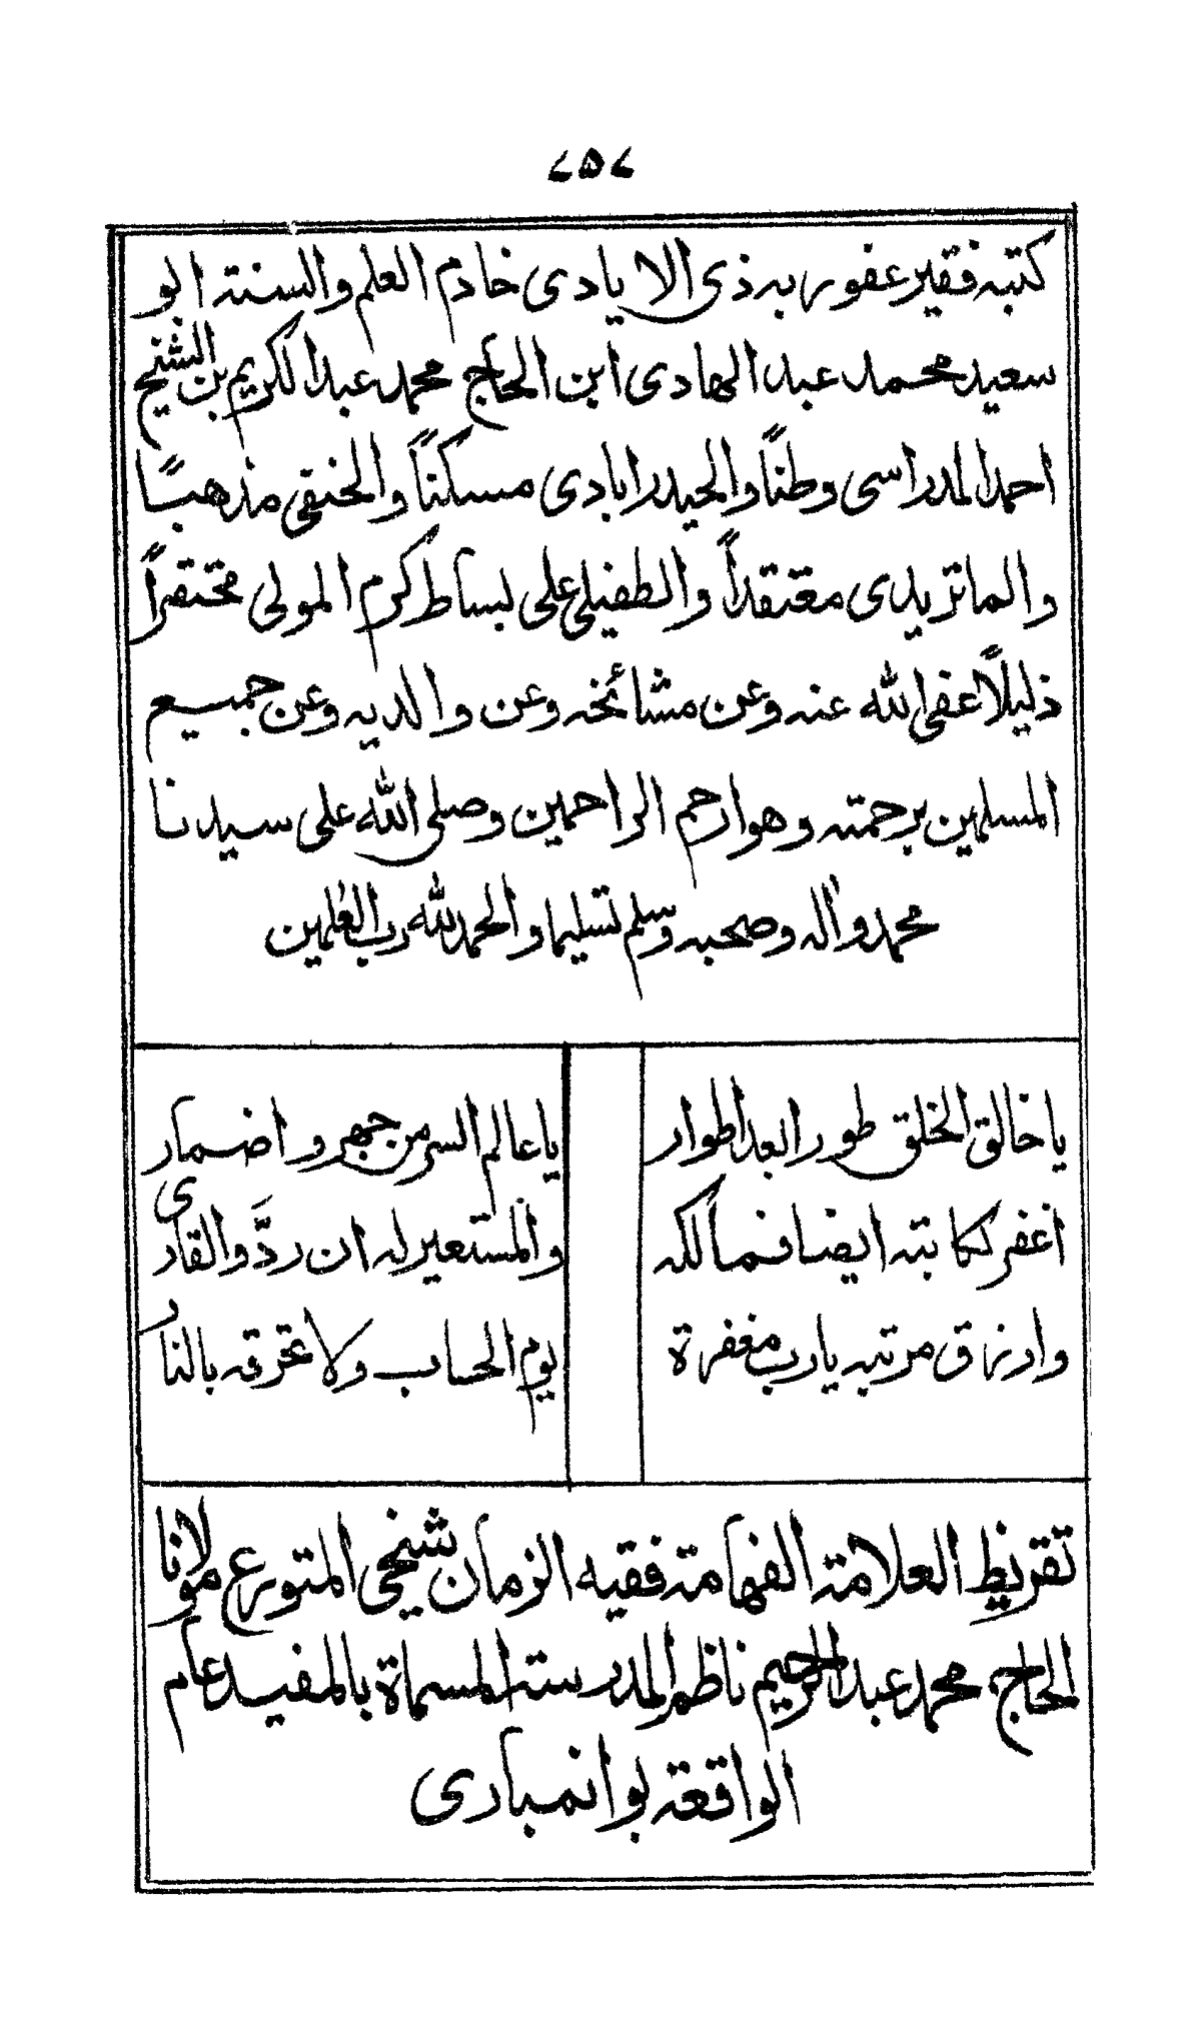 ٢٥٢
كتبه فقير عفور به ذى الايادى خادم العلم والسنة ابو
سعيد محمد عبد الهادى ابن الحاج محمد عبد الكريم بن الشيخ
احمد المدراسى وطناً والحيدرابادى مسكناً والحنفى مذهباً
والماتريدى معتقداً والطفيلى على بساط كرم المولى محتقراً
ذليلاً عفى الله عنه وعن مشائخه وعن والديه وعن جميع
المسلمين برحمته وهو ارحم الراحمين وصلى الله على سيدنا
محمد واله وصحبه وسلم تسليما والحمد لله رب العٰلمين
يا خالق الخلق طورا بعد اطوار يا عالم السر من جهر واضمار
اغفر لكاتبه ايضا فمالكه والمستعير له ان ردَّ والقارى
وارزق مرتبه يارب مغفرة يوم الحساب ولا تحرقه بالنار
تقريظ العلامة الفهامة فقيه الزمان شيخى المتورع مولانا
الحاج محمد عبد الرحيم ناظم المدرسة المسماة بالمفيد عام
الواقعة بوانمبارى